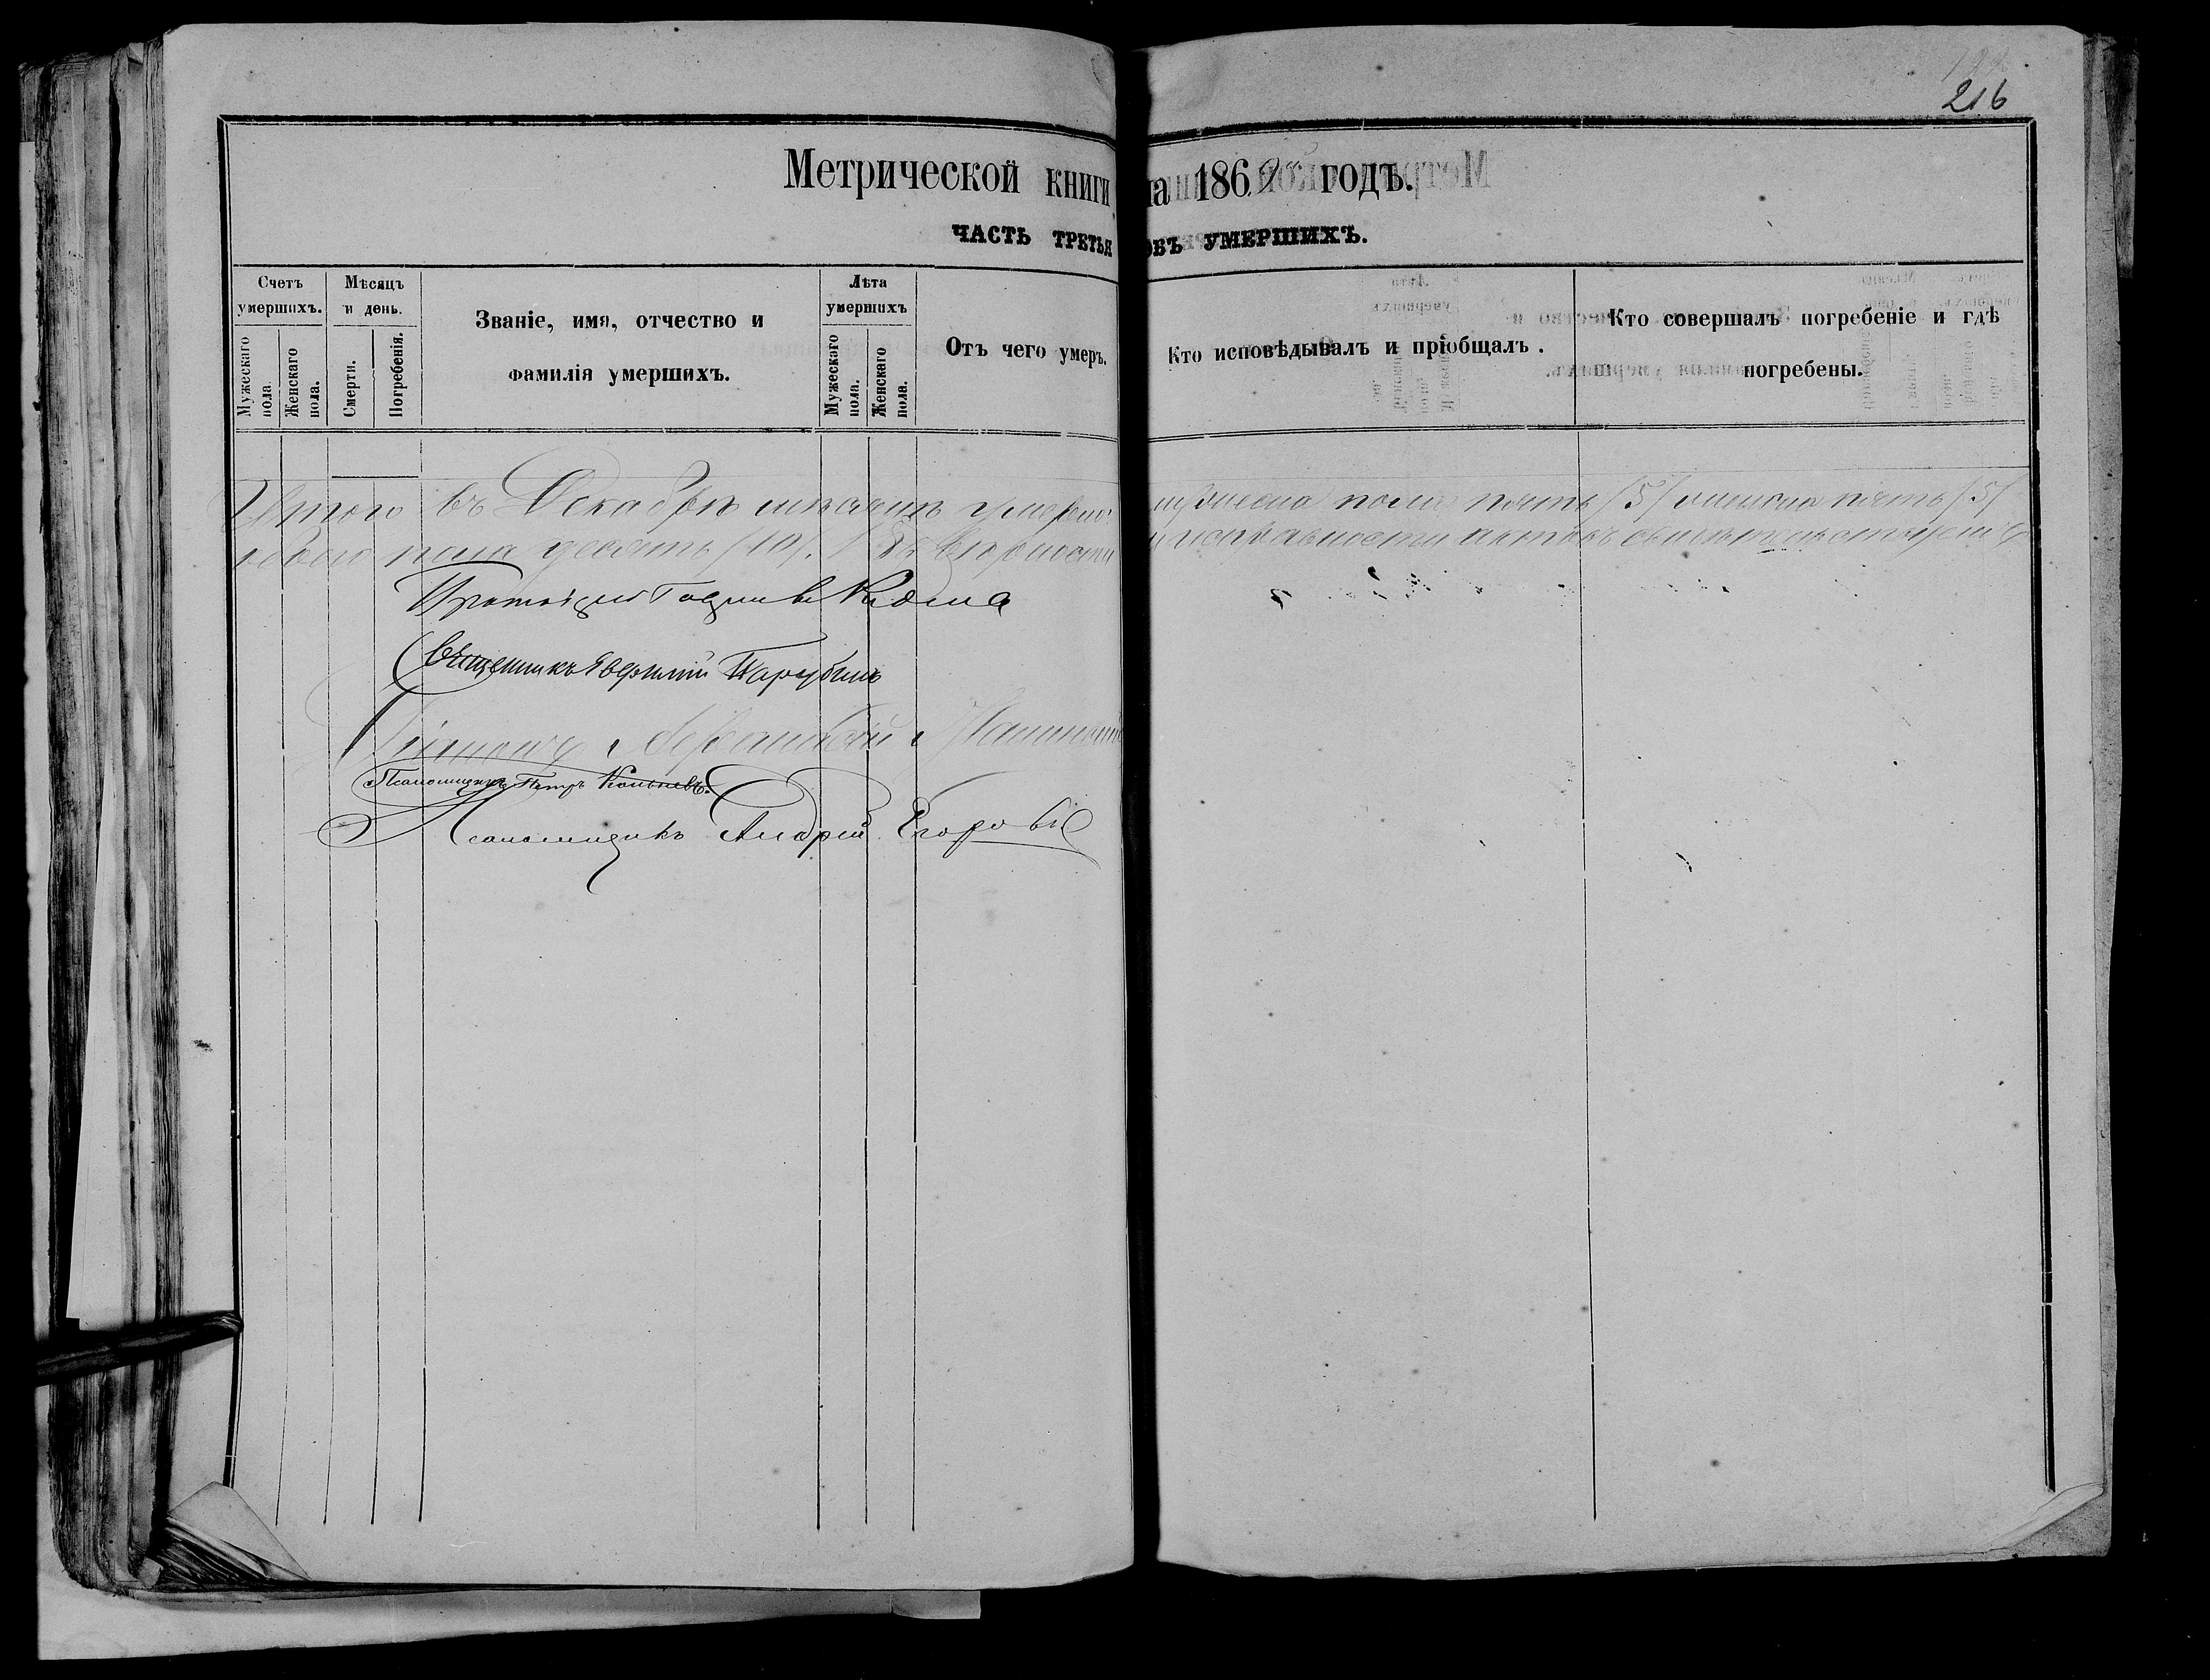 216
Метрической книги на 1862 годъ.
ЧАСТЬ ТРЕТЬЯ ОБЪ УМЕРШИХЪ.
Счетъ умершихъ.
Мужескаго пола.
Женскаго пола.
Мѣсяцъ и день.
Смерти.
Погребенія.
Званіе, имя, отчество и
фамилія умершихъ.
Лѣта умершихъ
Мужескаго пола.
Женскаго пола.
Отъ чего умеръ.
Кто исповѣдывалъ и пріобщалъ.
Кто совершалъ погребеніе и гдѣ
погребены.
Итого въ Декабрѣ мѣсяцѣ умерло мужеска пола пять /5/ женска пять /5/
обоего пола десять /10/. Въ вѣрности и исправности актовъ свидѣтельствуемъ
Протоіерей
Священникъ Евфимій
Псаломщикъ Петръ
Псаломщикъ Андрей Егоровъ